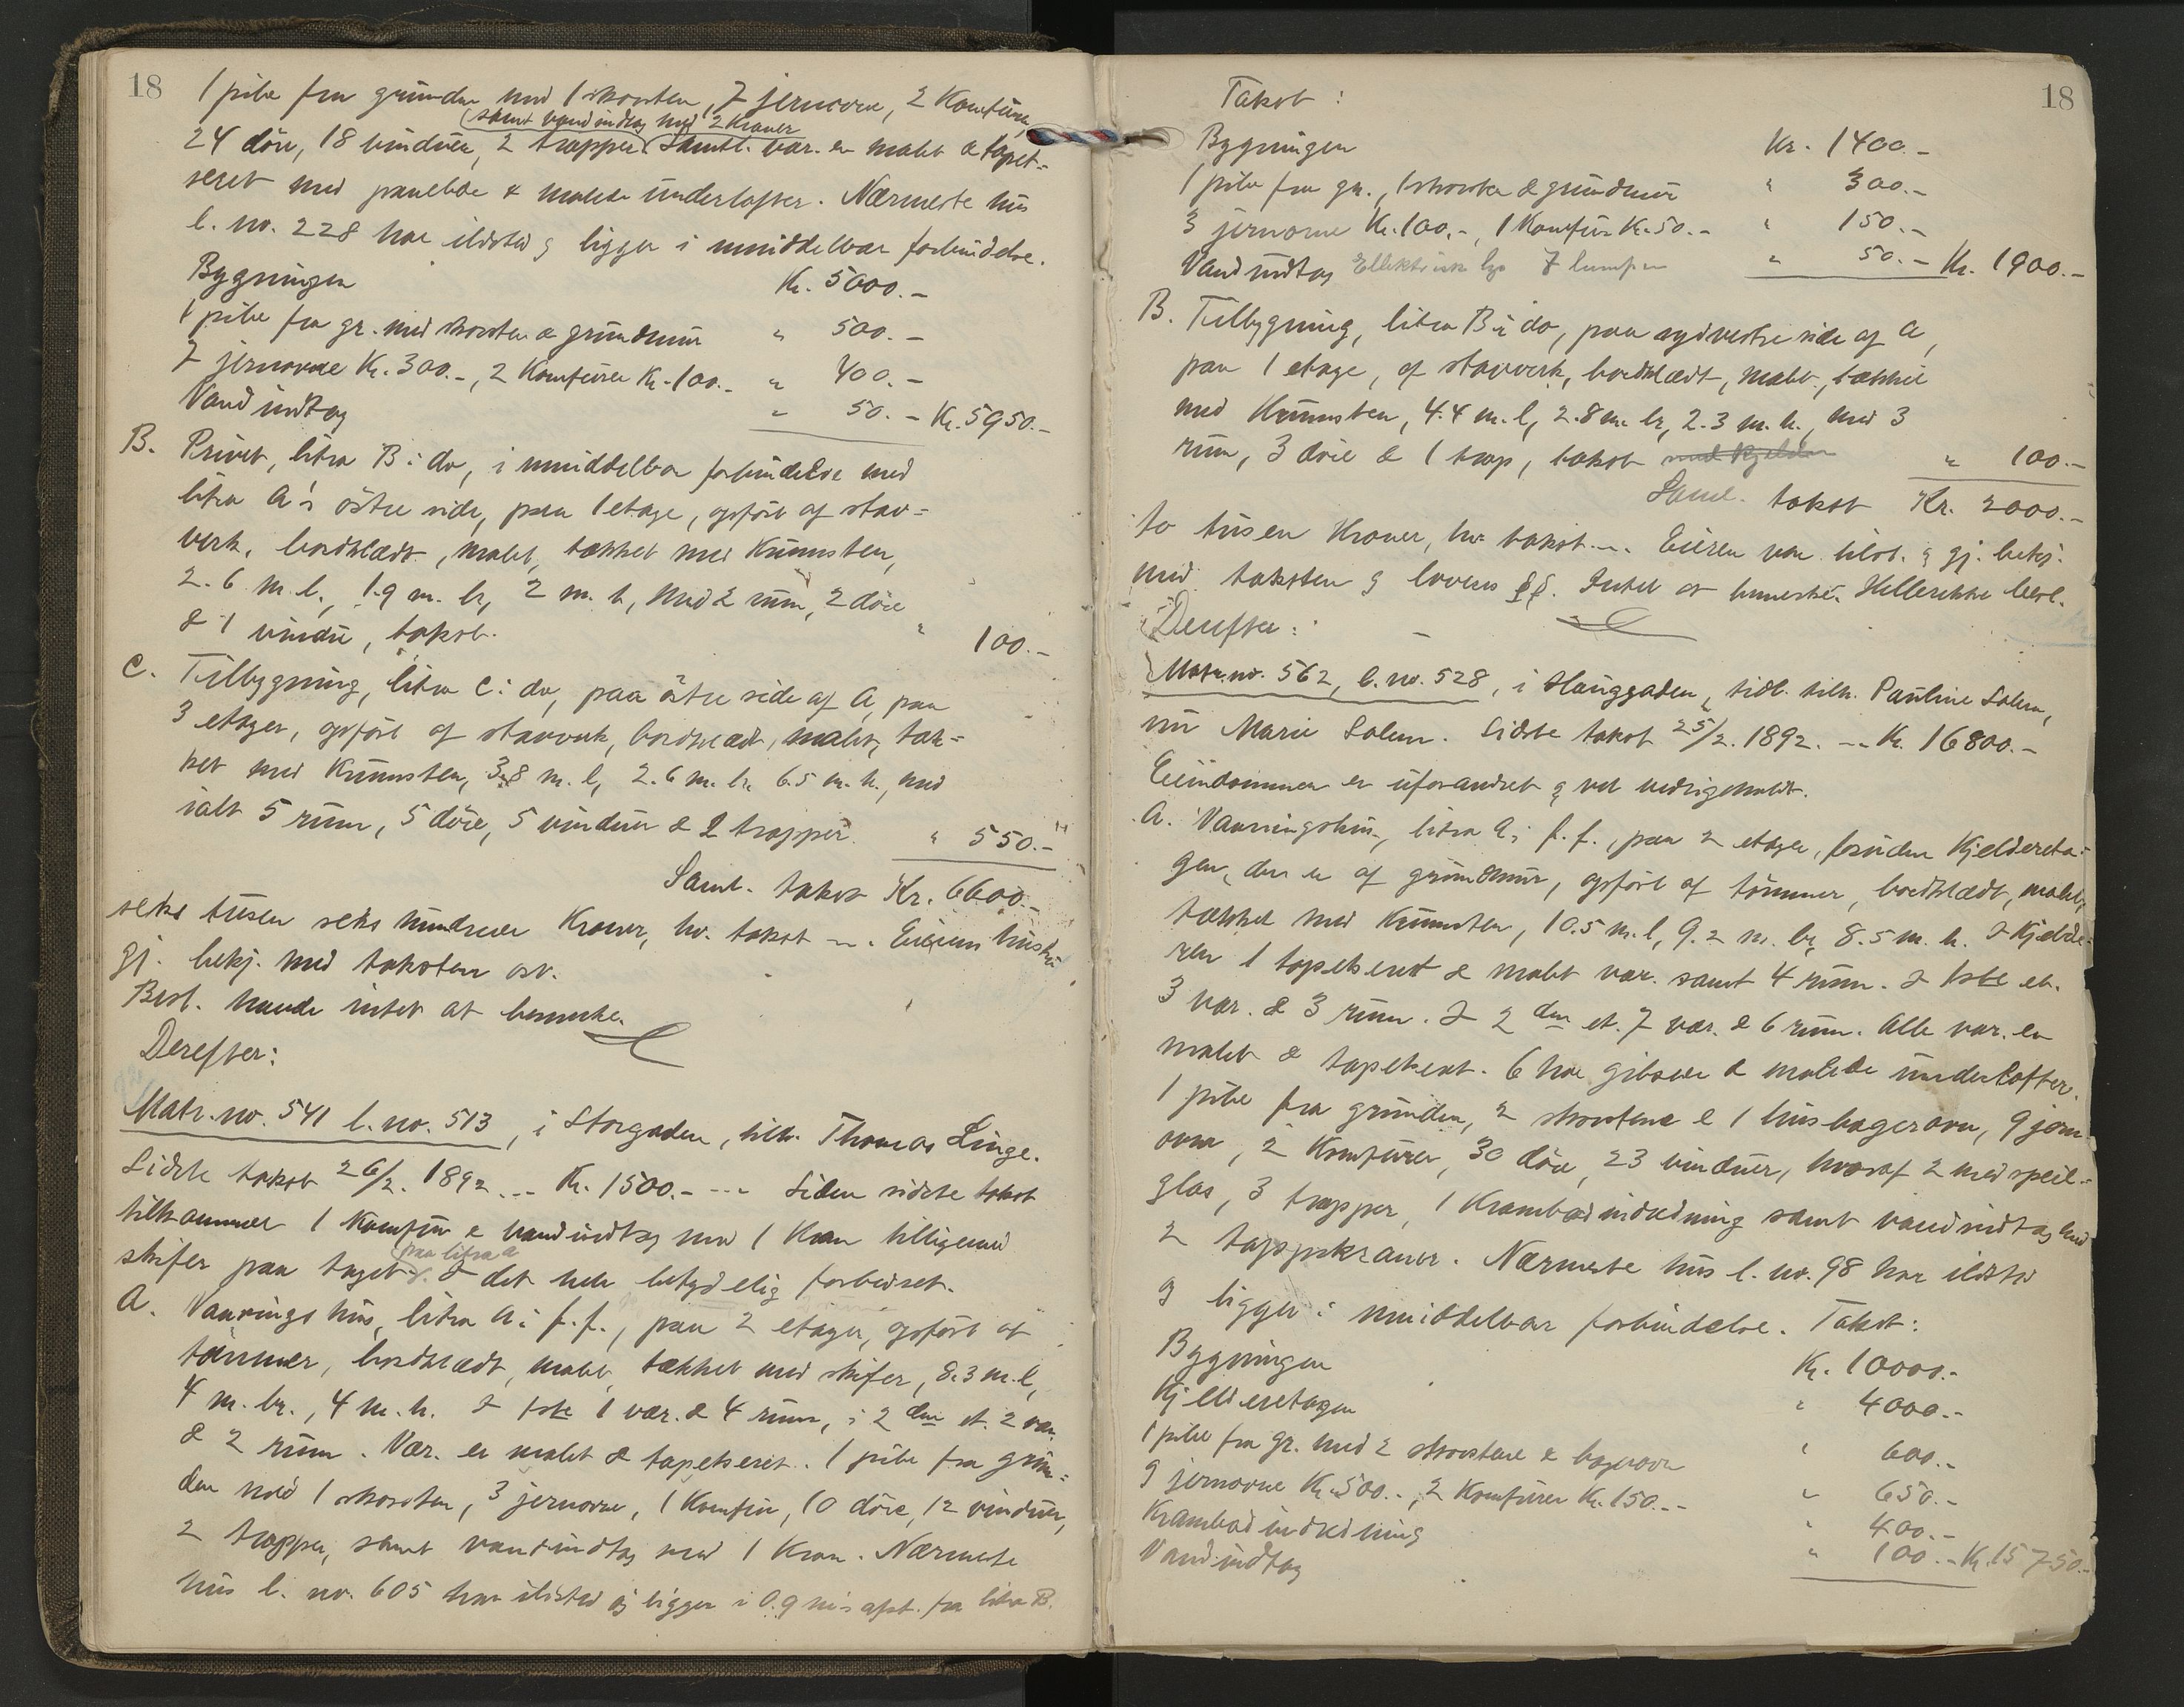 18
1 pibe fra grunden med 1 skorsten, 7 jernovne, 2 Komfürer,
(samt vandindtag med 2 Kraner
24 döre, 18 vinduer, 2 trapper. Samtl. vær. er malet & tapet-
seret med panelede & malede underlofter. Nærmeste hus
l. no. 228 har ildsted og ligger i umiddelbar forbindelse.
Bygningen Kr. 5000.-
1 pibe fra gr. med skorsten & grundmur " 500.-
7 jernovne Kr. 300.-, 2 Komfürer Kr. 100.- " 400.-
Vandindtag " 50.- Kr. 5950.-
B. Privet, litra B i do, i umiddelbar forbindelse med
litra A's östre side, paa 1 etage, opfört af stav-
verk, bordklædt, malet, tækket med Krumsten,
2.6 m. l., 1.9 m. br, 2 m. h, med 2 rum, 2 döre
& 1 vindu, takst. " 100.-
C. Tilbygning, litra C i do, paa östre side af A, paa
3 etager, opfört af stavverk, bordklædt, malet, tæk-
ket med Krumsten, 3.8 m. l, 2.6 m. br. 6.5 m. h., med
ialt 5 rum, 5 döre, 5 vinduer & 2 trapper. " 550.-
Saml. takst Kr. 6600.-
seks tusen seks hundrede Kroner, hv. takst ... Eierens hustru
gj. bekj. med taksten osv.
Best. havde intet at bemerke.
Derefter:
Matr. no. 541 l. no. 513, i Storgaden, tilh. Thomas Linge.
Sidste takst 26/2. 1892 ... Kr. 1500.- ... Siden sidste takst
tilkommer 1 Komfür & vandindtag med 1 Kran tilligemed
paa litra a
skifer paa taget & det hele betydelig forbedret.
A. Vaaningshus, litra A i f. f., paa 2 etager, opfört af
tömmer, bordklædt, malet, tækket med skifer, 8.3 m. l,
4 m. br., 4 m. h. I 1ste 1 vær. & 4 rum, i 2den et. 2 vær.
& 2 rum. Vær. er malet & tapetseret. 1 pibe fra grun-
den med 1 skorsten, 3 jernovne, 1 Komfür, 10 döre, 12 vinduer,
2 trapper, samt vandindtag med 1 Kran. Nærmeste
hus l. no. 605 har ildsted og ligger i 0.9 m's afst. fra litra B.
18
Takst:
Bygningen Kr. 1400.-
1 pibe fra gr., 1 skorsten & grundmur " 300.-
3 jernovne Kr. 100.-, 1 Komfür Kr. 50.- " 150.-
Vandindtag Ellektrisk lys 7 lamper " 50.- Kr. 1900.-
B. Tilbygning, litra B i do, paa sydvestre side af A,
paa 1 etage, af stavverk, bordklædt, malet, tækket
med Krumsten, 4.4 m. l, 2.8 m. br, 2.3 m. h., med 3
rum, 3 döre & 1 trap, takst med kjelder " 100.-
Saml. takst Kr. 2000.-
to tusen Kroner, hv. takst ... Eieren var tilst. & gj. bekj.
med taksten & lovens §§. Intet at bemerke. Hellerikke best.
Derefter:
Matr. no. 562, l. no. 528, i Hauggaden, tidl. tilh. Pauline Solem,
nu Marie Solem. Sidste takst 25/2. 1892. ... Kr. 16800.-
Eiendommen er uforandret & vel vedligeholdt.
A. Vaaningshus, litra A i f. f., paa 2 etager, foruden Kjeldereta-
gen, der er af grundmur, opfört af tömmer, bordklædt, malet,
tækket med Krumsten, 10.5 m. l, 9.2 m. br, 8.5 m. h. I Kjelde-
ren 1 tapetseret & malet vær. samt 4 rum. I 1ste et.
3 vær. & 3 rum. I 2den et. 7 vær. & 6 rum. Alle vær. er
malet & tapetseret. 6 har gibsede & malede underlofter.
1 pibe fra grunden, 2 skorstene & 1 husbagerovn, 9 jern-
ovne, 2 Komfürer, 30 döre, 23 vinduer, hvoraf 2 med speil-
glas, 3 trapper, 1 Krambodindredning samt vandindtag med
2 tappekraner. Nærmeste hus l. no. 98 har ildsted
& ligger i umiddelbar forbindelse. Takst:
Bygningen Kr. 10000.-
Kjelderetagen " 4000.-
1 pibe fra gr. med 2 skorstene & bagerovn " 600.-
9 jernovne Kr. 500.-, 2 Komfürer Kr. 150.- " 650.-
Krambodindredning " 400.-
Vandindtag " 100.- Kr. 15750.-